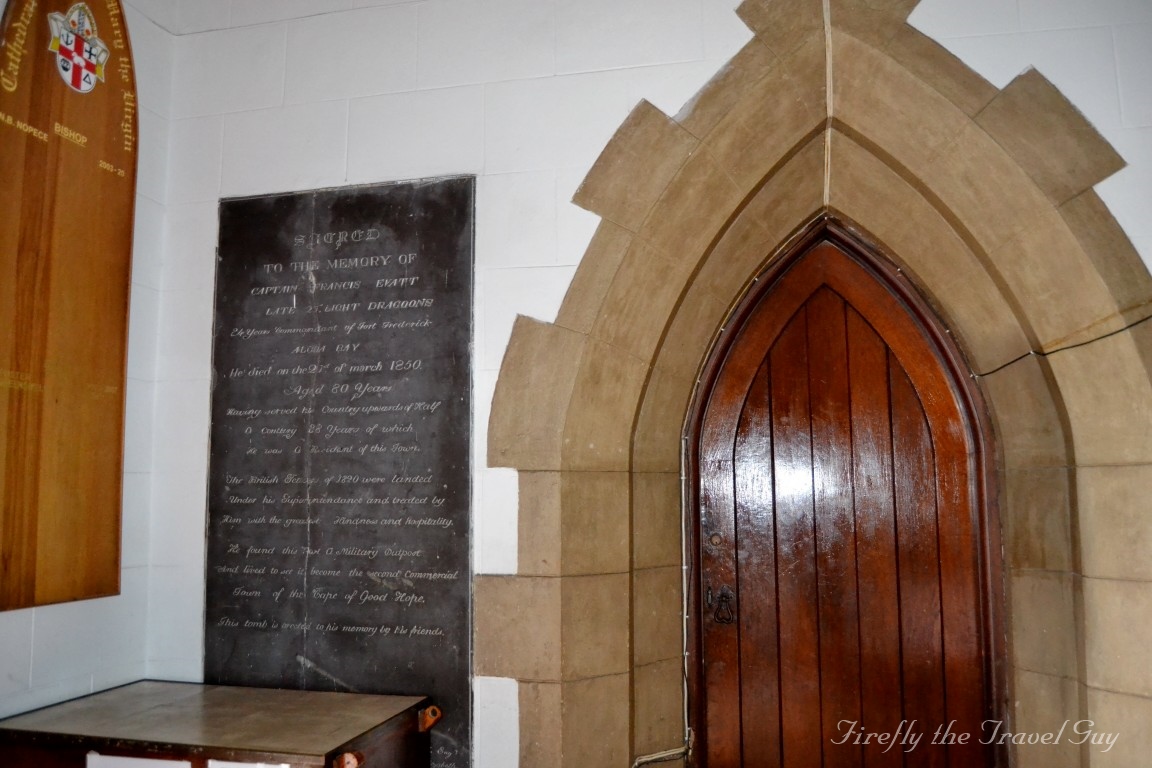 Cathedral
Mary the Virgin
N.B. NOPECE BISHOP 2001-20
SACRED
TO THE MEMORY OF
CAPTAIN FRANCIS EVATT
LATE LIGHT DRAGOONS
24 Years Commandant of Fort Frederick
ALGOA BAY
He died on the of march 1850.
Aged 80 Years
Having served his Country upwards of Half
A Century 38 Years of which
He was A Resident of this Town.
The British Settlers of 1820 were landed
Under his Superintendance and treated by
Him with the greatest Kindness and hospitality,
He found this Port A Military Outpost
And lived to see it become the second Commercial
Town of the Cape of Good Hope.
This tomb is erected to his memory by his friends.
Firefly the Travel Guy